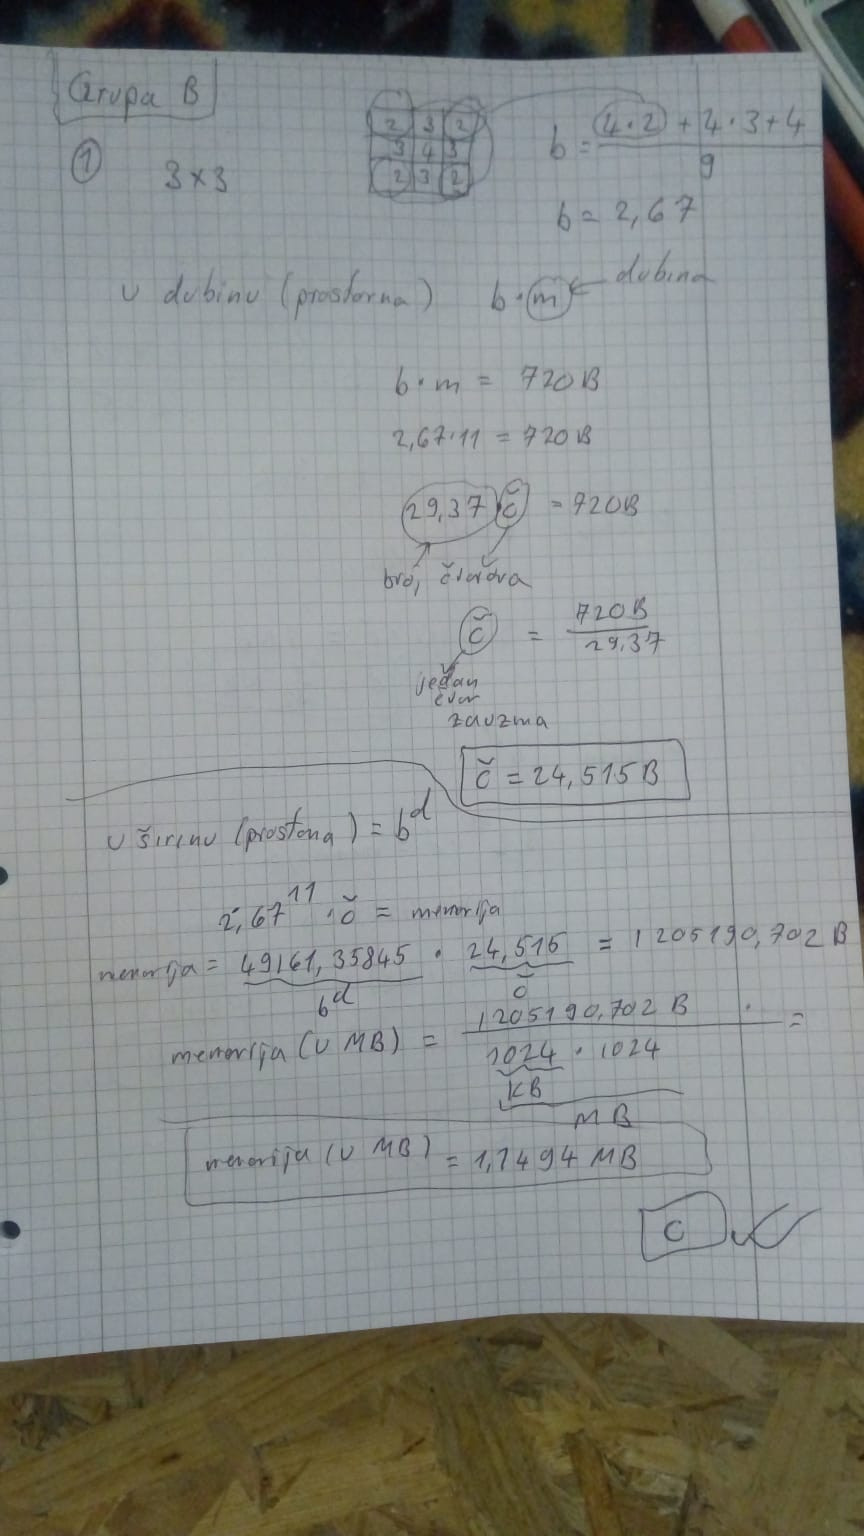 Grupa B
① 3×3
2 3 2
3 4 3
2 3 2
b = (4·2) + 4·3+4 / 9
b = 2,67
U dubinu (prostorna) b·m ← dubina
b·m = 720B
2,67·11 = 720B
29,37 · č = 720B
broj čvorova
č = 720B / 29,37
jedan
čvor
zauzma
č = 24,515B
U širinu (prostorna) = b^d
2,67^11 · č = memorija
memorija = 49161,35845 · 24,515 = 1205190,702 B
b^d č
memorija (U MB) = 1205190,702 B / 1024 · 1024 =
KB
MB
memorija (U MB) = 1,1494 MB
C ✓